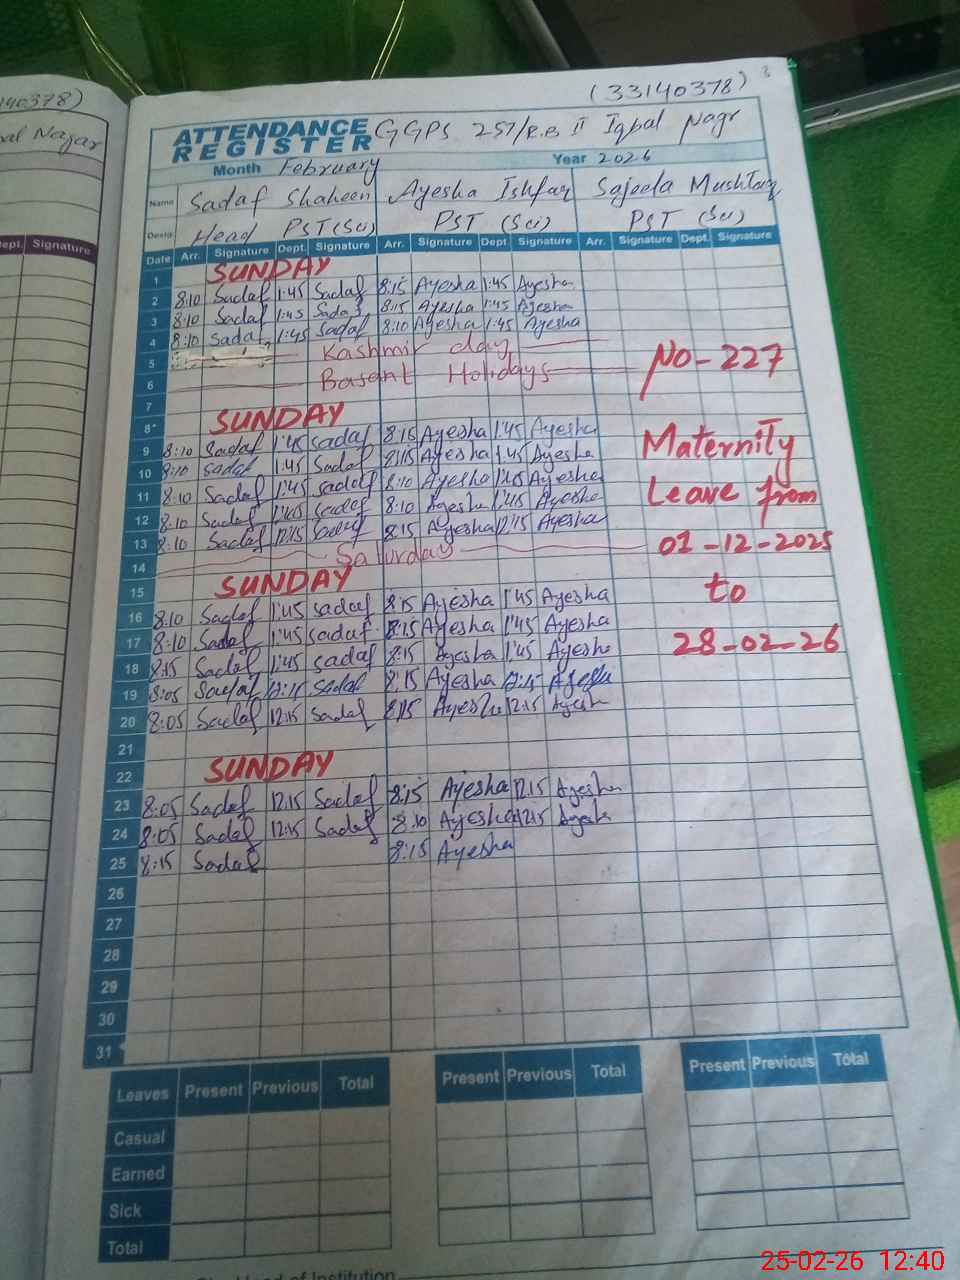 140378)
Nagar
Dept. Signature
(33140378) 3
ATTENDANCE REGISTER GGPS 257/R.B II Iqbal Nagr
Month February Year 2026
Name Sadaf Shaheen Ayesha Ishfaq Sajeela Mushtaq
Desig. Head PST (Sci) PST (Sci) PST (Sci)
Date Arr. Signature Dept. Signature Arr. Signature Dept Signature Arr. Signature Dept. Signature
1 SUNDAY
2 8:10 Sadaf 1:45 Sadaf 8:15 Ayesha 1:45 Ayesha
3 8:10 Sadaf 1:45 Sadaf 8:15 Ayesha 1:45 Ayesha
4 8:10 Sadaf 1:45 Sadaf 8:10 Ayesha 1:45 Ayesha
5 Kashmir day
6 Basant Holidays
No-227
7
8 SUNDAY
9 8:10 Sadaf 1:45 Sadaf 8:15 Ayesha 1:45 Ayesha
Maternity
10 8:10 Sadaf 1:45 Sadaf 8:15 Ayesha 1:45 Ayesha
11 8:10 Sadaf 1:45 Sadaf 8:10 Ayesha 1:45 Ayesha
Leave from
12 8:10 Sadaf 1:45 Sadaf 8:10 Ayesha 1:45 Ayesha
13 8:10 Sadaf 12:15 Sadaf 8:15 Ayesha 12:15 Ayesha
01-12-2025
14 Saturday
15 SUNDAY
to
16 8:10 Sadaf 1:45 Sadaf 8:15 Ayesha 1:45 Ayesha
17 8:10 Sadaf 1:45 Sadaf 8:15 Ayesha 1:45 Ayesha
28-02-26
18 8:15 Sadaf 1:45 Sadaf 8:15 Ayesha 1:45 Ayesha
19 8:05 Sadaf 12:15 Sadaf 8:15 Ayesha 12:15 Ayesha
20 8:05 Sadaf 12:15 Sadaf 8:15 Ayesha 12:15 Ayesha
21
22 SUNDAY
23 8:05 Sadaf 12:15 Sadaf 8:15 Ayesha 12:15 Ayesha
24 8:05 Sadaf 12:15 Sadaf 8:10 Ayesha 12:15 Ayesha
25 8:15 Sadaf 8:15 Ayesha
26
27
28
29
30
31
Leaves Present Previous Total Present Previous Total Present Previous Total
Casual
Earned
Sick
Total
Head of Institution
25-02-26 12:40